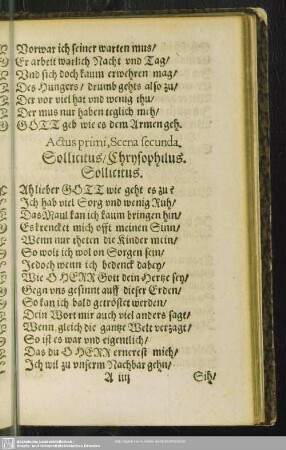 Vorwar ich seiner warten mus/
Er arbeit warlich Nacht vnd Tag/
Vnd sich doch kaum erwehren mag/
Des Hungers/ drumb gehts also zu/
Der vor viel hat vnd wenig thu/
Der mus nur haben teglich mich/
GOTT geb wie es dem Armen geh.
Actus primi, Scena secunda.
Sollicitus/ Chrysophilus.
Sollicitus.
Ah lieber GOTT wie geht es zu?
Ich hab viel Sorg vnd wenig Ruh/
Das Maul kan ich kaum bringen hin/
Es krencket mich offt meinen Sinn/
Wenn nur theten die Kinder mein/
So wolt ich wol on Sorgen sein/
Jedoch wenn ich bedenck dabey/
Wie O HERR Gott dein Hertze sey/
Gegn vns gesinnt auff dieser Erden/
So kan ich bald getröstet werden/
Dein Wort mir auch viel anders sagt/
Wenn gleich die gantze Welt verzagt/
So ist es war vnd eigentlich/
Das du O HERR ernerest mich/
Ich wil zu vnserm Nachbar gehn/
A iiij Sih/